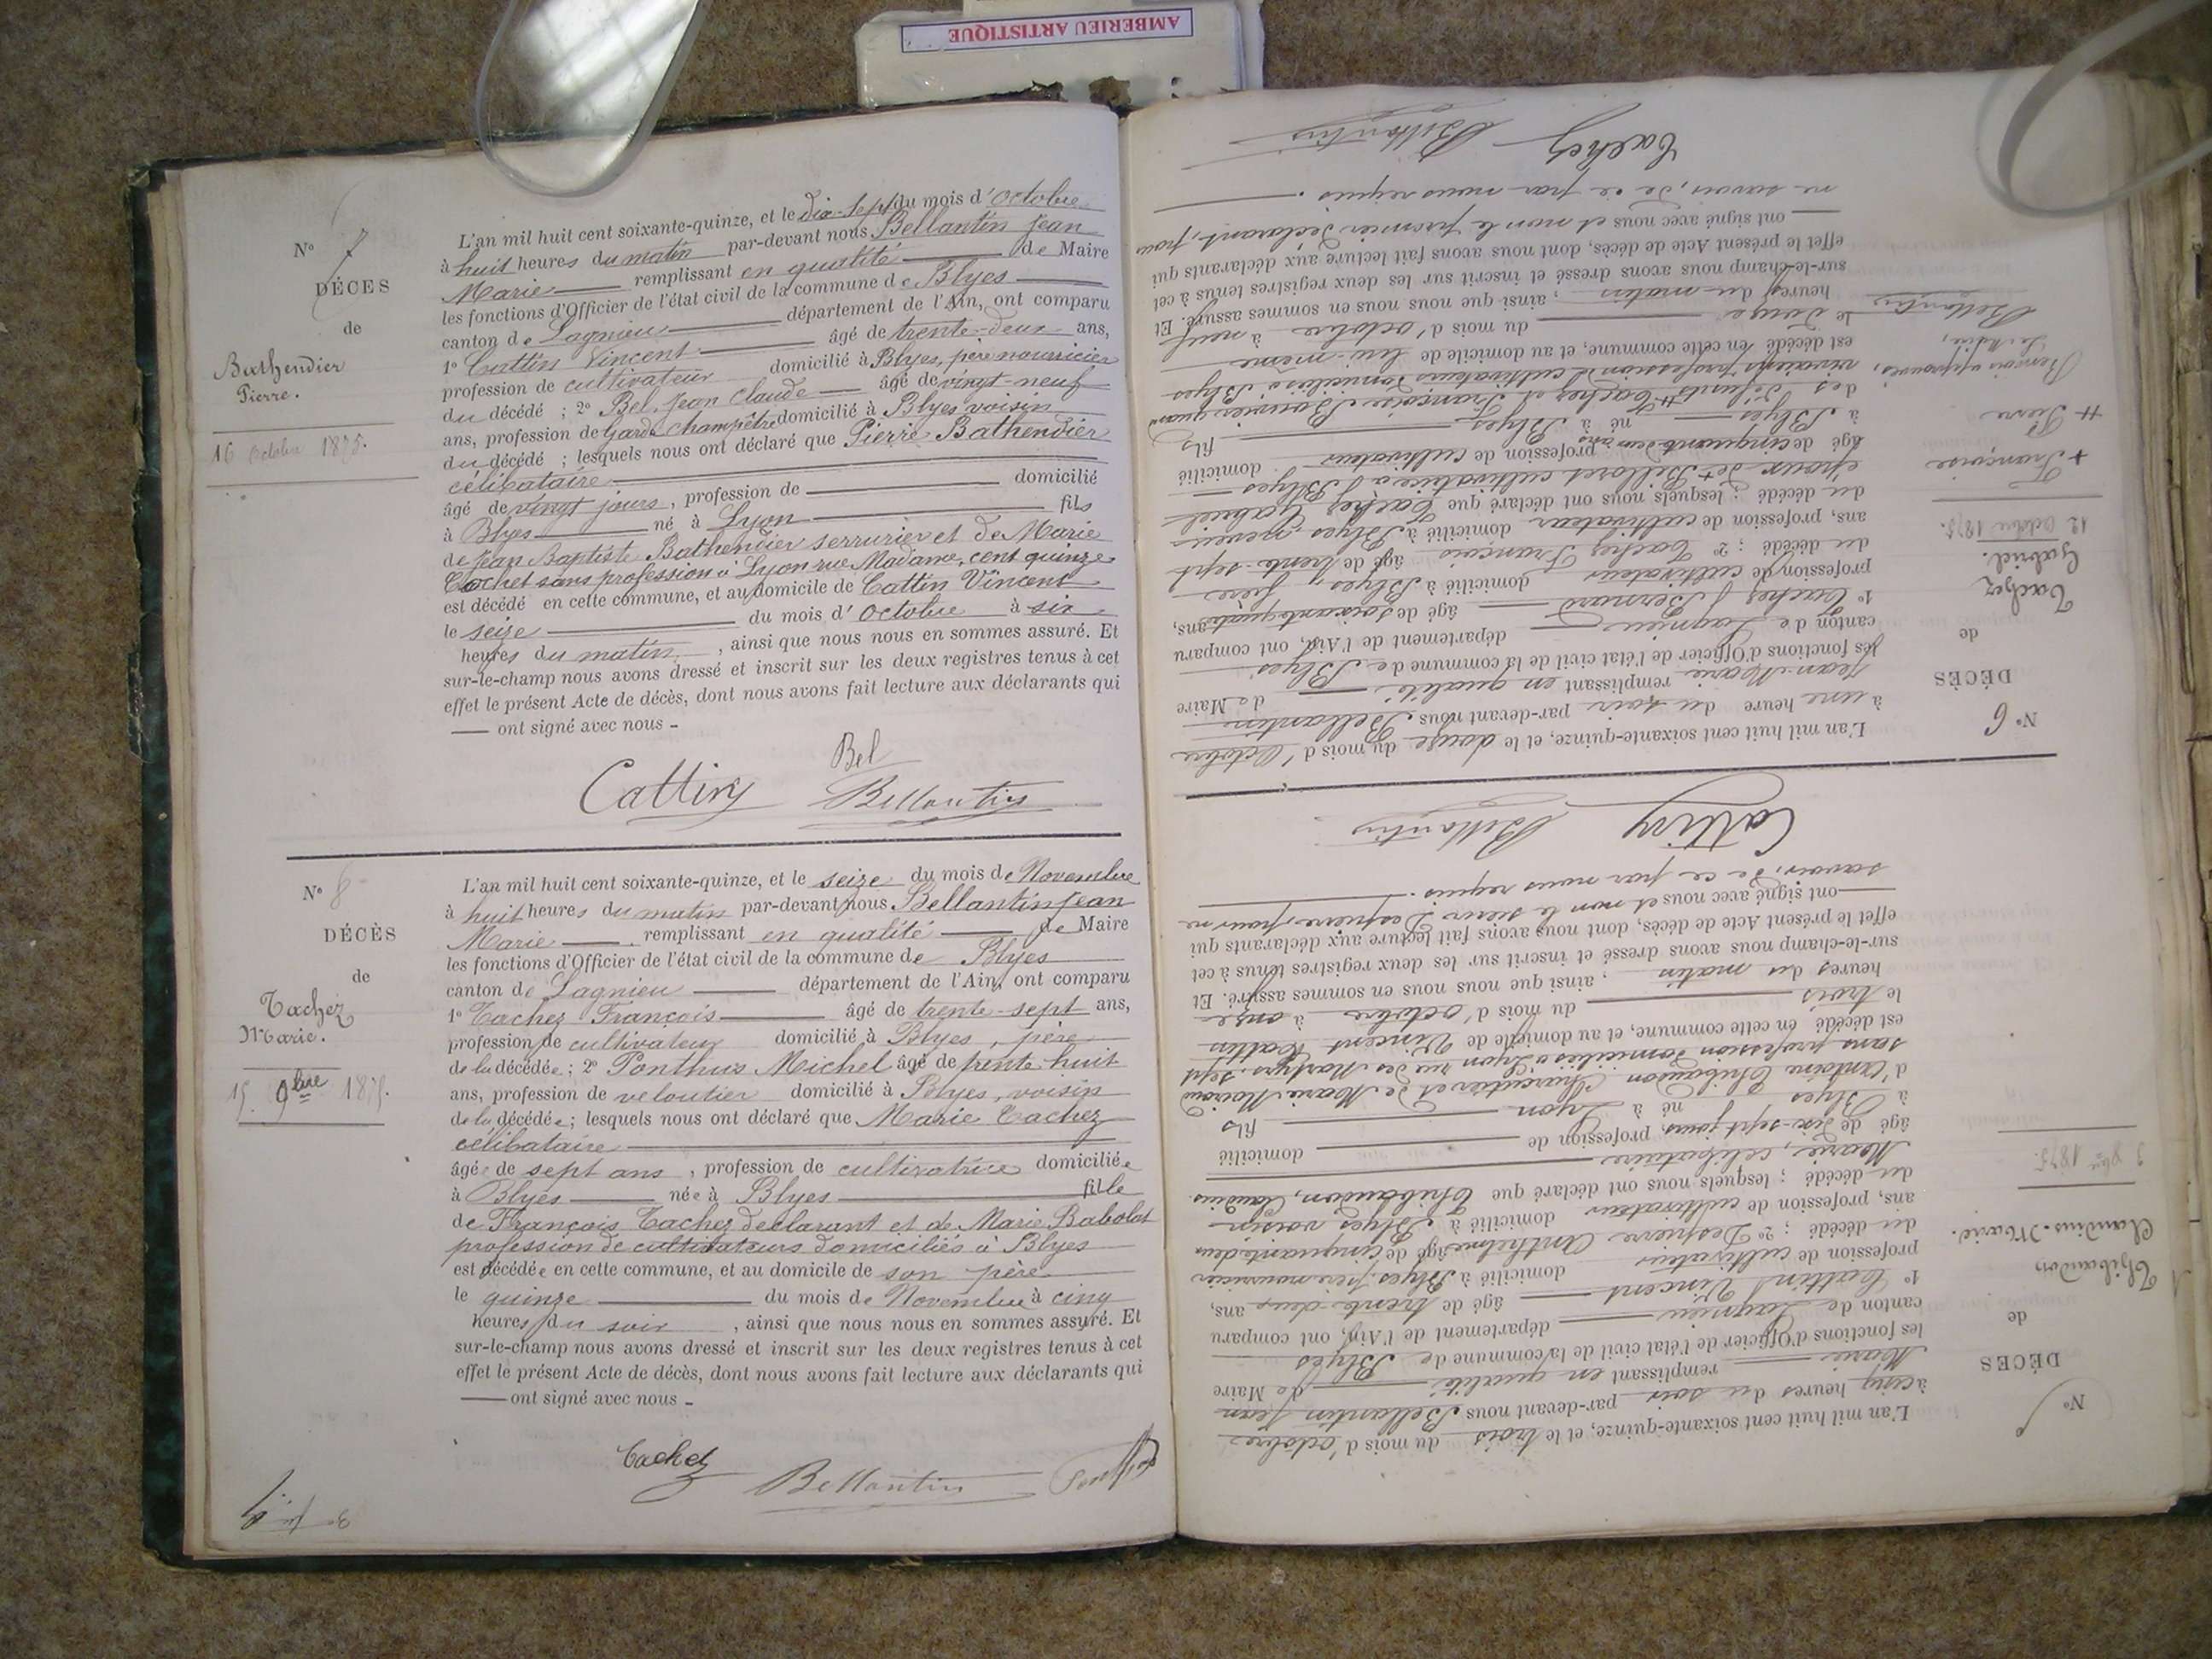 AMBERIEU ARTISTIQUE
N° 7
DÉCES
de
Bathendier
Pierre.
16 octobre 1875.
L'an mil huit cent soixante-quinze, et le dix-sept du mois d'octobre
à huit heures du matin par-devant nous Bellantin Jean
Marie remplissant en qualité de Maire
les fonctions d'Officier de l'état civil de la commune de Blyes
canton de Lagnieu département de l'Ain, ont comparu
1° Cattin Vincent âgé de trente-deux ans,
profession de cultivateur domicilié à Blyes, père nourricier
du décédé ; 2° Bel Jean Claude âgé de vingt-neuf
ans, profession de Garde Champêtre domicilié à Blyes voisin
du décédé ; lesquels nous ont déclaré que Pierre Bathendier
célibataire
âgé de vingt jours, profession de domicilié
à Blyes né à Lyon fils
de Jean Baptiste Bathendier serrurier et de Marie
Cochet sans profession à Lyon rue Madame, cent quinze
est décédé en cette commune, et au domicile de Cattin Vincent
le seize du mois d'octobre à six
heures du matin, ainsi que nous nous en sommes assuré. Et
sur-le-champ nous avons dressé et inscrit sur les deux registres tenus à cet
effet le présent Acte de décès, dont nous avons fait lecture aux déclarants qui
ont signé avec nous
Bel
Cattin Bellantin
N° 8
DÉCÈS
de
Tachez
Marie.
15 9bre 1875.
L'an mil huit cent soixante-quinze, et le seize du mois de Novembre
à huit heures du matin par-devant nous Bellantin Jean
Marie remplissant en qualité de Maire
les fonctions d'Officier de l'état civil de la commune de Blyes
canton de Lagnieu département de l'Ain, ont comparu
1° Tachez François âgé de trente-sept ans,
profession de cultivateur domicilié à Blyes, père
de la décédée ; 2° Ponthus Michel âgé de trente huit
ans, profession de veloutier domicilié à Blyes, voisin
de la décédée ; lesquels nous ont déclaré que Marie Tachez
célibataire
âgée de sept ans, profession de cultivatrice domiciliée
à Blyes née à Blyes fille
de François Tachez déclarant et de Marie Babolat
profession de cultivateurs domiciliés à Blyes
est décédée en cette commune, et au domicile de son père
le quinze du mois de Novembre à cinq
heures du soir, ainsi que nous nous en sommes assuré. Et
sur-le-champ nous avons dressé et inscrit sur les deux registres tenus à cet
effet le présent Acte de décès, dont nous avons fait lecture aux déclarants qui
ont signé avec nous
Tachez Bellantin
N°
DÉCÈS
de
Thibaudon
Claudius-Marie.
3 8bre 1875.
L'an mil huit cent soixante-quinze, et le trois du mois d'octobre
à cinq heures du soir par-devant nous Bellantin Jean
Marie remplissant en qualité de Maire
les fonctions d'Officier de l'état civil de la commune de Blyes
canton de Lagnieu département de l'Ain, ont comparu
1° Cattin Vincent âgé de trente-deux ans,
profession de cultivateur domicilié à Blyes, père nourricier
du décédé ; 2° Despierre Anthelme âgé de cinquante deux
ans, profession de cultivateur domicilié à Blyes voisin
du décédé ; lesquels nous ont déclaré que Thibaudon, Claudius
Marie, célibataire
âgé de dix-sept jours, profession de domicilié
à Blyes né à Lyon fils
d'Antoine Thibaudon charcutier et de Marie
sans profession domiciliés à Lyon rue des Martyrs, sept
est décédé en cette commune, et au domicile de Vincent Cattin
le trois du mois d'octobre à onze
heures du matin, ainsi que nous nous en sommes assuré. Et
sur-le-champ nous avons dressé et inscrit sur les deux registres tenus à cet
effet le présent Acte de décès, dont nous avons fait lecture aux déclarants qui
ont signé avec nous et non le sieur Despierre, pour ne
savoir, de ce par nous requis.
Cattin Bellantin
N° 6
DÉCÈS
de
Tachez
Gabriel.
12 octobre 1875.
+ Françoise
++ Pierre
Renvois approuvés,
Le Maire,
Bellantin
L'an mil huit cent soixante-quinze, et le douze du mois d'octobre
à une heure du soir par-devant nous Bellantin
Jean-Marie remplissant en qualité de Maire
les fonctions d'Officier de l'état civil de la commune de Blyes
canton de Lagnieu département de l'Ain, ont comparu
1° Tachez Bernard âgé de soixante quatre ans,
profession de cultivateur domicilié à Blyes, frère
du décédé ; 2° Tachez François âgé de trente-sept
ans, profession de cultivateur domicilié à Blyes, neveu
du décédé ; lesquels nous ont déclaré que Tachez Gabriel
époux de + Belloret cultivatrice à Blyes
âgé de cinquante deux ans, profession de cultivateur domicilié
à Blyes né à Blyes fils
des défunts ++ Tachez et Françoise Bouvier, quand
vivaient profession d cultivateurs domiciliés à Blyes
est décédé en cette commune, et au domicile de lui-même
le douze du mois d'octobre à neuf
heures du matin, ainsi que nous nous en sommes assuré. Et
sur-le-champ nous avons dressé et inscrit sur les deux registres tenus à cet
effet le présent Acte de décès, dont nous avons fait lecture aux déclarants qui
ont signé avec nous et non le premier déclarant, pour
ne savoir, de ce par nous requis.
Tachez Bellantin